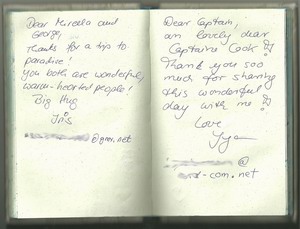 Dear Mirella and
George,
Thanks for a trip to
paradise!
You both are wonderful,
warm-hearted people!
Big Hug
Iris
@gmx.net
Dear Captain,
an lovely dear
Captaine Cook
Thank you soo
much for sharing
this wonderful
day with me
Love
@
-com.net